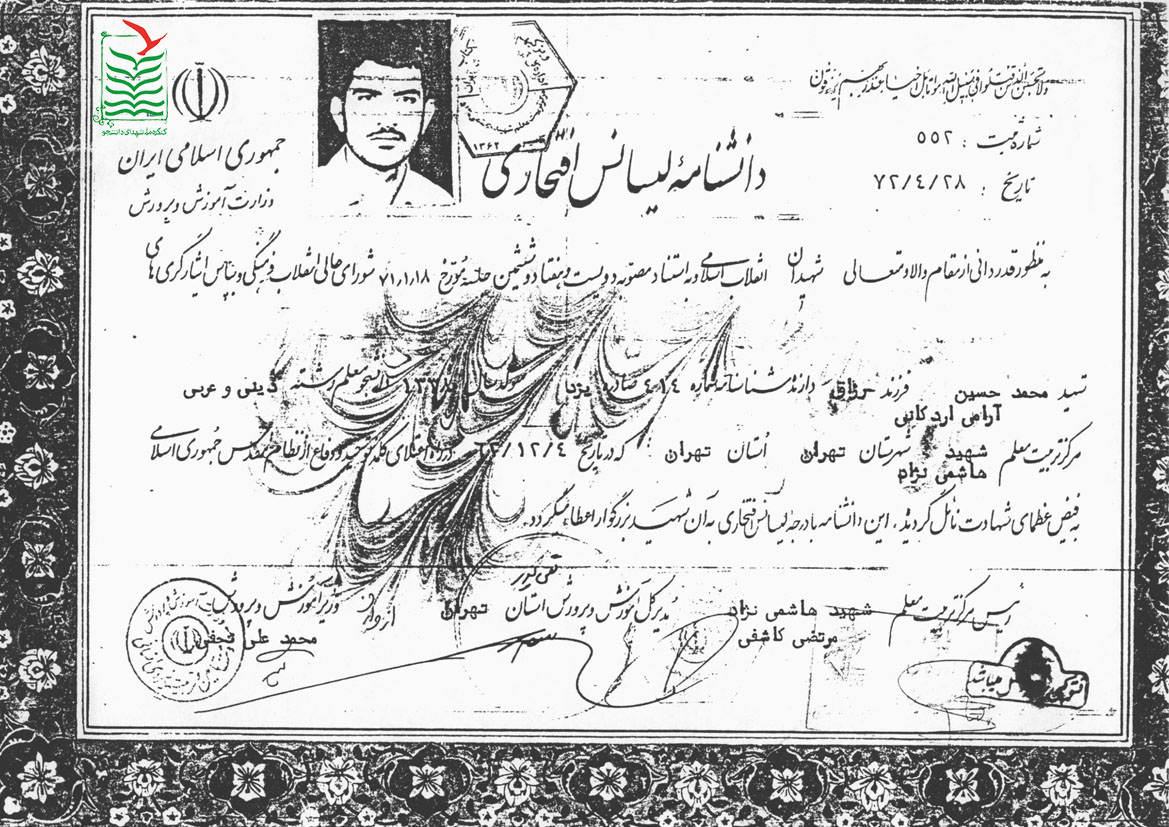 ولا تحسبن الذین قتلوا فی سبیل الله امواتا بل احیاء عند ربهم یرزقون
شماره ثبت : ۵۵۲
تاریخ : ۷۲/٤/۲۸
کنگره ملی شهدای دانشجو
جمهوری اسلامی ایران
وزارت آموزش و پرورش
۱۳۶۲
دانشنامهٔ لیسانس افتخاری
به منظور قدردانی از مقام والا و متعالی شهیدان انقلاب اسلامی و به استناد مصوبه دویست و هفتاد و ششمین جلسه مورخ ۷۱،۱،۱۸ شورای عالی انقلاب فرهنگی و بپاس ایثارگری های
شهید محمد حسین فرزند دارنده شناسنامه شماره ٤١٤ صادره متولد سال دانشجو معلم رشته دینی و عربی
آرامی اردکانی
مرکز تربیت معلم شهید شهرستان تهران اُستان تهران که در تاریخ ۱۲/٤ در راه اعتلای کلمه توحید و دفاع از نظام مقدس جمهوری اسلامی
هاشمی نژاد
به فیض عظمای شهادت نائل گردید، این دانشنامه با درجه لیسانس افتخاری به آن شهید بزرگوار اعطاء میگردد.
رئیس مرکز تربیت معلم شهید هاشمی نژاد
مرتضی کاشفی
مدیر کل آموزش و پرورش استان تهران
وزیر آموزش و پرورش
محمد علی نجفی